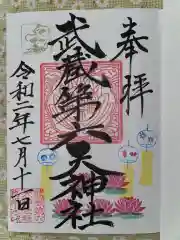 奉拝
武蔵第六天神社
令和二年七月十一日